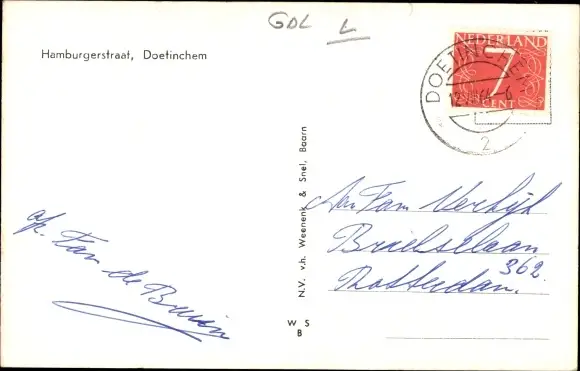 GDL L
Hamburgerstraat, Doetinchem
NEDERLAND
7
CENT
DOETINCHEM
2
N.V. v.h. Weenenk & Snel, Baarn
W S
B
Aan Fam Verhijk
Brielselaan
362
Rotterdam.
afz. Fam de Bruin